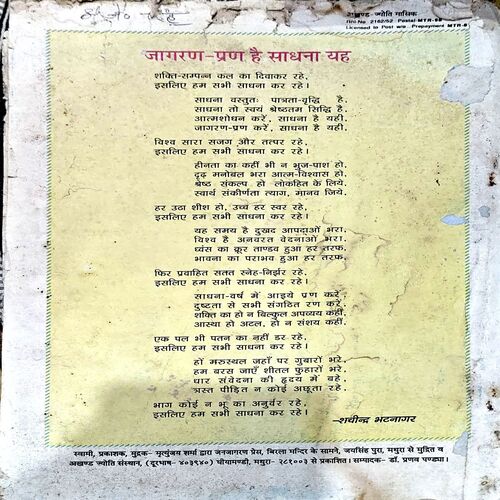 अखण्ड-ज्योति मासिक
R.N.I No. 2162/52 Postal-MTR-98
Licensed to Post w/o. Prepayment MTR-8
जागरण-प्रण है साधना यह
शक्ति-सम्पन्न कल का दिवाकर रहे,
इसलिए हम सभी साधना कर रहे।
साधना वस्तुतः पात्रता-वृद्धि है,
साधना तो स्वयं श्रेष्ठतम सिद्धि है,
आत्मशोधन करें, साधना है यही,
जागरण-प्रण करें, साधना है यही,
विश्व सारा सजग और तत्पर रहे,
इसलिए हम सभी साधना कर रहे।
हीनता का कहीं भी न भुज-पाश हो,
दृढ़ मनोबल भरा आत्म-विश्वास हो,
श्रेष्ठ संकल्प हो लोकहित के लिये,
स्वार्थ संकीर्णता त्याग, मानव जिये,
हर उठा शीश हो, उच्च हर स्वर रहे,
इसलिए हम सभी साधना कर रहे।
यह समय है दुखद आपदाओं भरा,
विश्व है अनवरत वेदनाओं भरा,
ध्वंस का क्रूर ताण्डव हुआ हर तरफ,
भावना का पराभव हुआ हर तरफ,
फिर प्रवाहित सतत स्नेह-निर्झर रहे,
इसलिए हम सभी साधना कर रहे।
साधना-वर्ष में आइये प्रण करें
दुष्टता से सभी संगठित रण करें,
शक्ति का हो न बिल्कुल अपव्यय कहीं,
आस्था हो अटल, हो न संशय कहीं,
एक पल भी पतन का नहीं डर रहे,
इसलिए हम सभी साधना कर रहे।
हों मरुस्थल जहाँ पर गुबारों भरे,
हम बरस जाएँ शीतल फुहारों भरे,
धार संवेदना की हृदय में बहे,
त्रस्त पीड़ित न कोई अछूता रहे,
भाग कोई न भू का अनुर्वर रहे,
इसलिए हम सभी साधना कर रहे।
-शचीन्द्र भटनागर
स्वामी, प्रकाशक, मुद्रक- मृत्युंजय शर्मा द्वारा जनजागरण प्रेस, बिरला मन्दिर के सामने, जयसिंह पुरा, मथुरा से मुद्रित व
अखण्ड ज्योति संस्थान, (दूरभाष- ४०३९४०) घीयामण्डी, मथुरा- २८१००३ से प्रकाशित। सम्पादक- डॉ. प्रणव पण्ड्या।